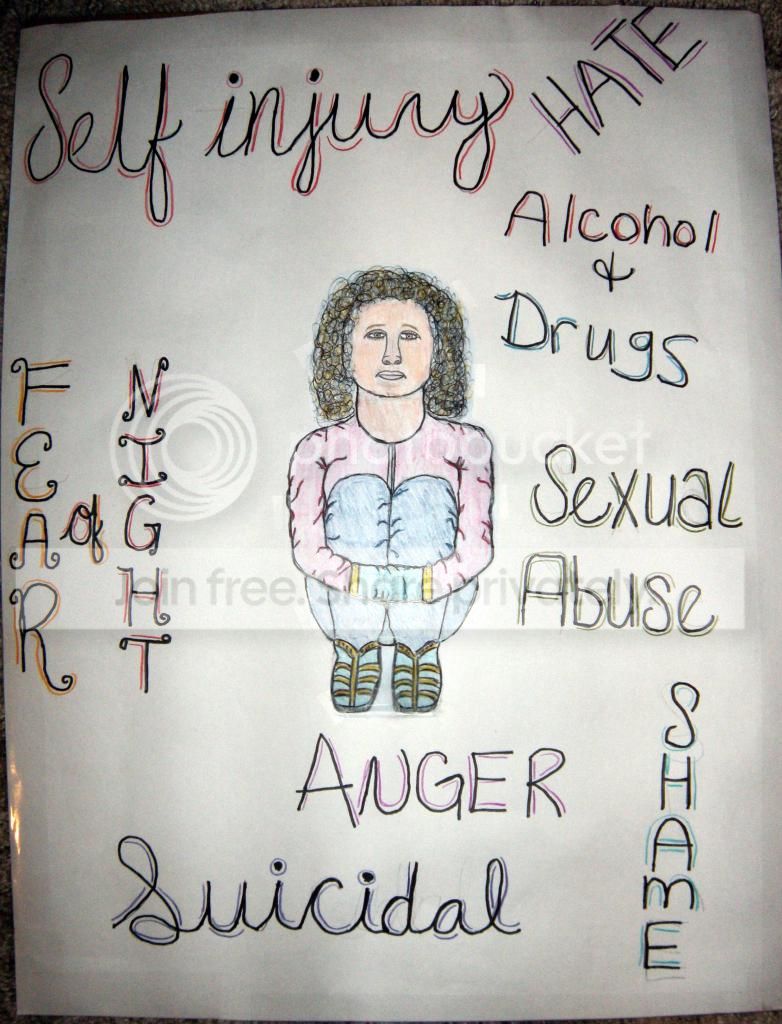 Self injury
HATE
Alcohol
&
Drugs
FEAR
of
NIGHT
photobucket
Join free. Share privately.
Sexual
Abuse
ANGER
SHAME
Suicidal